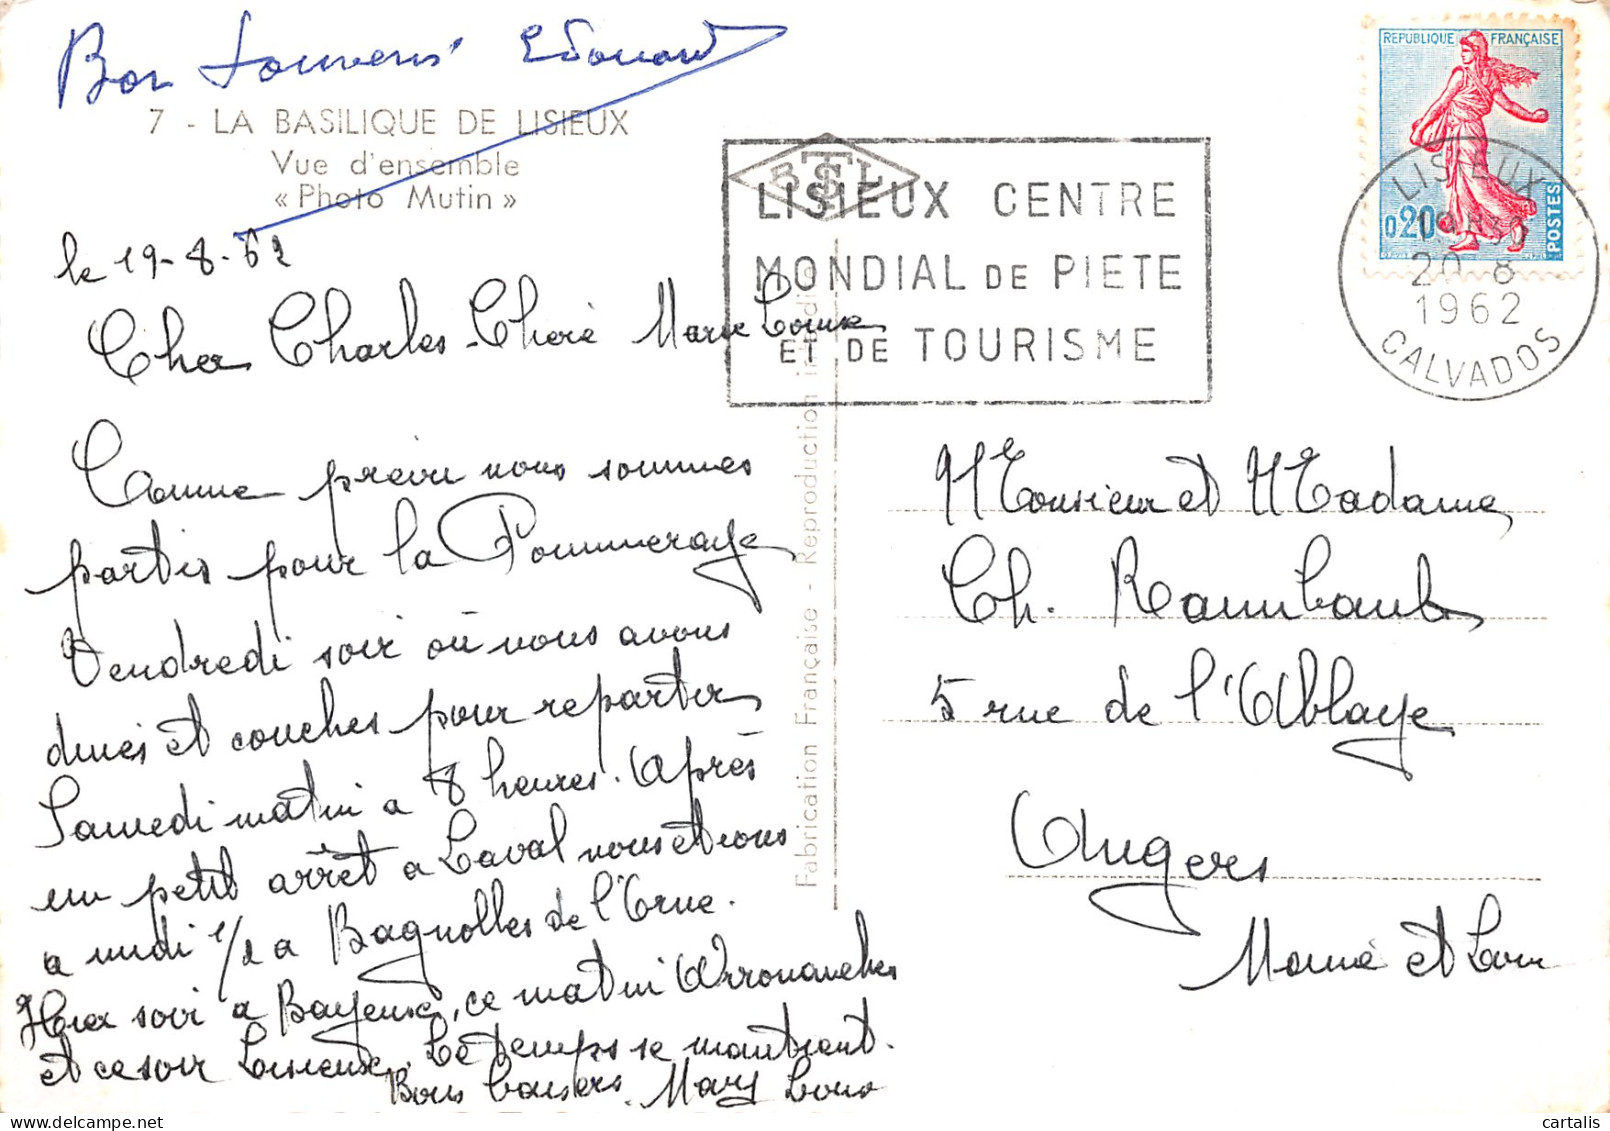 Bon souvenir Edouard
7 - LA BASILIQUE DE LISIEUX
Vue d'ensemble
« Photo Mutin »
le 19-8-62
Cher Charles - Chère Marie Louise
Comme prévu nous sommes
partis pour la Pommeraye
Vendredi soir où nous avons
dinés et couchés pour repartir
Samedi matin a 8 heures. Après
un petit arrêt a Laval nous étions
a midi 1/2 a Bagnolles de l'Orne.
Hier soir a Bayeux, ce matin Arromanches
et ce soir Lisieux. Le temps se maintient.
Bons baisers. Mary Lou
Fabrication Française - Reproduction
BSL
LISIEUX CENTRE
MONDIAL DE PIETE
ET DE TOURISME
REPUBLIQUE FRANÇAISE
0,20
POSTES
LISIEUX
20-8
1962
CALVADOS
Monsieur et Madame
Ch. Raimbault
5 rue de l'Abbaye
Angers
et Lou
cartalis